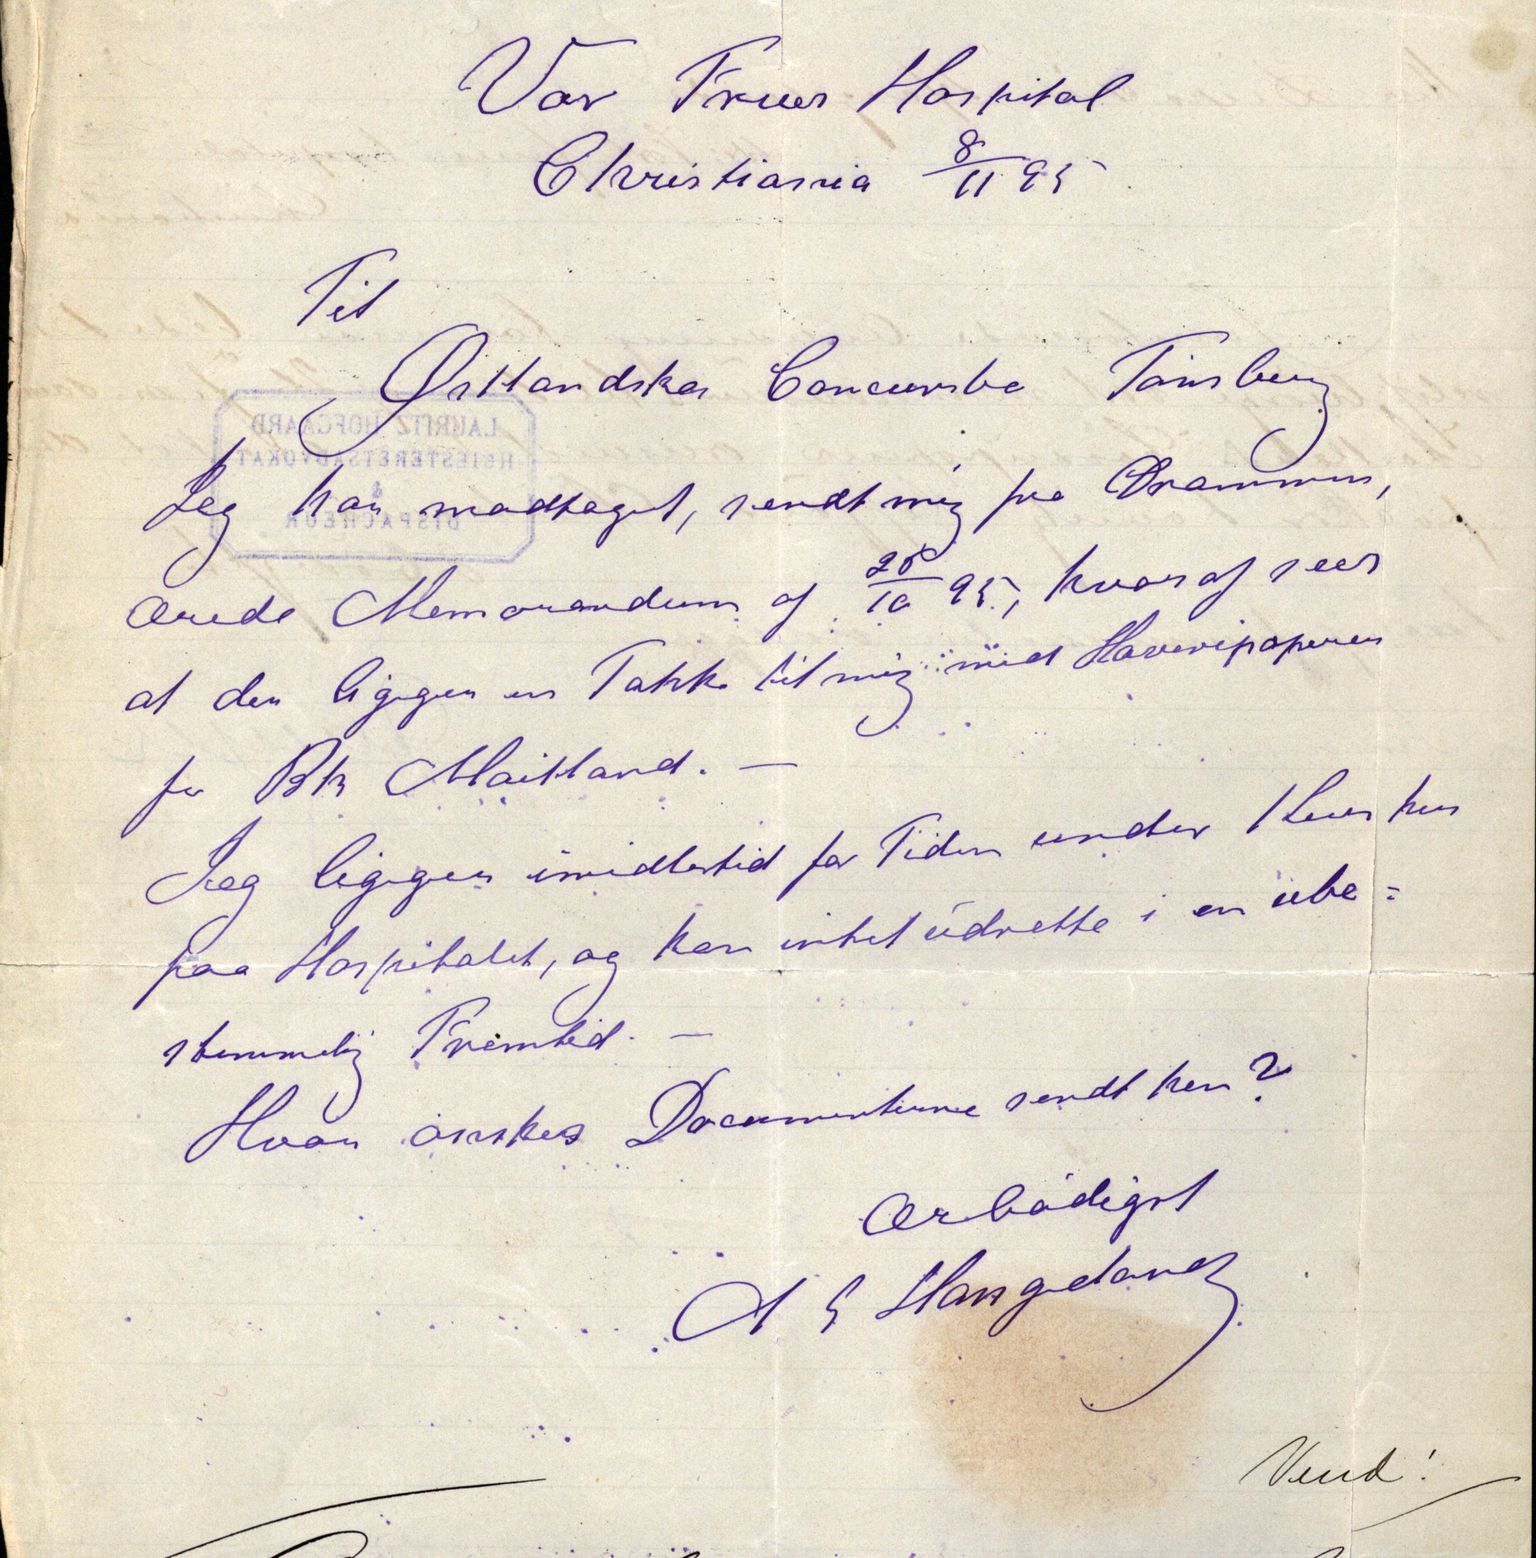 Vor Frues Hospital
Christiania 8/11 95
Til
Østlandske Concursbo Tønsberg
Jeg har modtaget, sendt mig fra Drammen,
ærede Memorandum af 28/10 95, hvoraf sees
at der ligger en Pakke til mig med Havaripapirer
for Bk Maitland. —
Jeg ligger imidlertid for Tiden under
paa Hospitalet, og kan intet udrette i en ube=
stemmelig Fremtid. —
Hvor ønskes Documenterne sendt hen?
Ærbødigst
Vend!
LAURITZ HOFGAARD
HØIESTERETSADVOKAT
&
DISPACHEUR